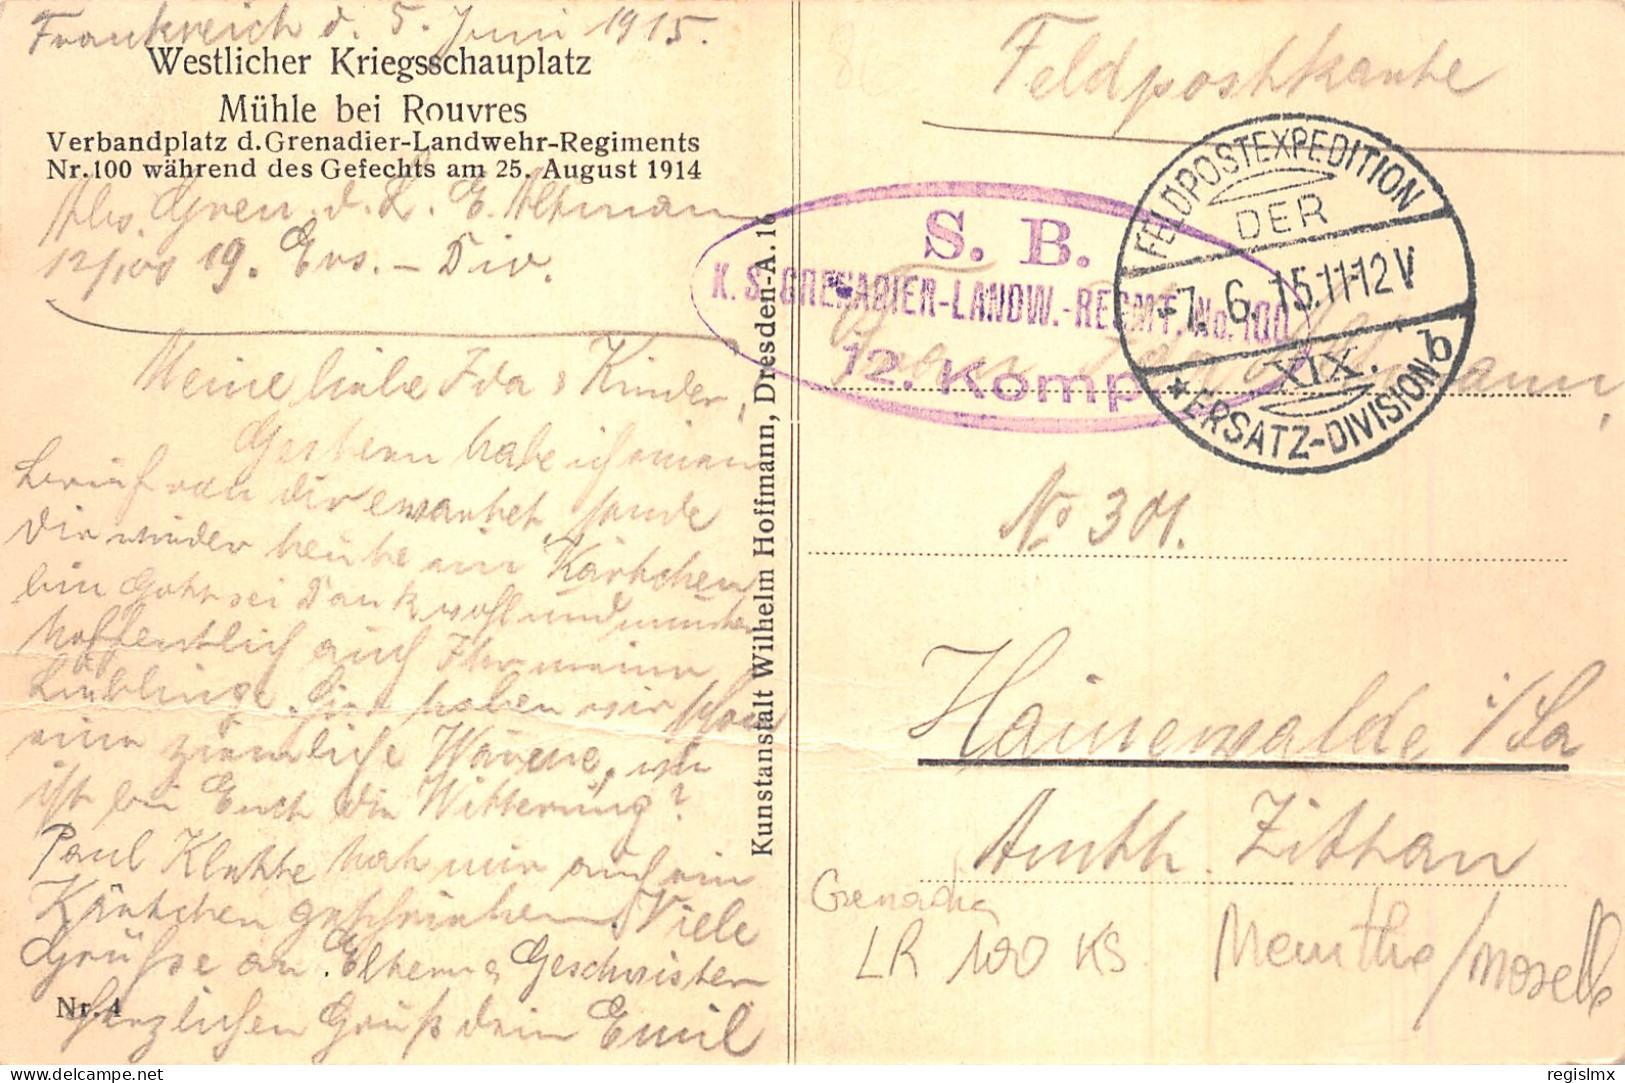 Frankreich d. 5. Juni 1915.
Westlicher Kriegsschauplatz
Mühle bei Rouvres
Verbandplatz d. Grenadier-Landwehr-Regiments
Nr. 100 während des Gefechts am 25. August 1914
Abs. Gren. d. L. E. Altmann
12/100 19. Ers. - Div.
Meine liebe Ida & Kinder,
Gestern habe ich einen
Brief von dir erwartet, sende
Dir wieder heute ein Kärtchen
bin Gott sei Dank wohl und munter
hoffentlich auch Ihr meine
Lieblinge. Hier haben wir schon
eine ziemliche Wärme, wie
ist bei Euch die Witterung?
Paul Klette hat mir auch ein
Kärtchen geschrieben. Viele
Grüße an Eltern & Geschwister
Herzlichen Gruß dein Emil
Nr. 4
Kunstanstalt Wilhelm Hoffmann, Dresden-A. 16
Feldpostkarte
S. B.
K. S. GRENADIER-LANDW.-REGMT. No. 100
12. Komp.
FELDPOSTEXPEDITION
DER
-7. 6. 15.11-12 V
XIX.
* ERSATZ-DIVISION b
Frau Ida Altmann,
No 301.
Hainewalde i/Sa
Amtsh. Zittau
Grenadier
LR 100 KS
Meurthe/moselle
delcampe.net
regislmx